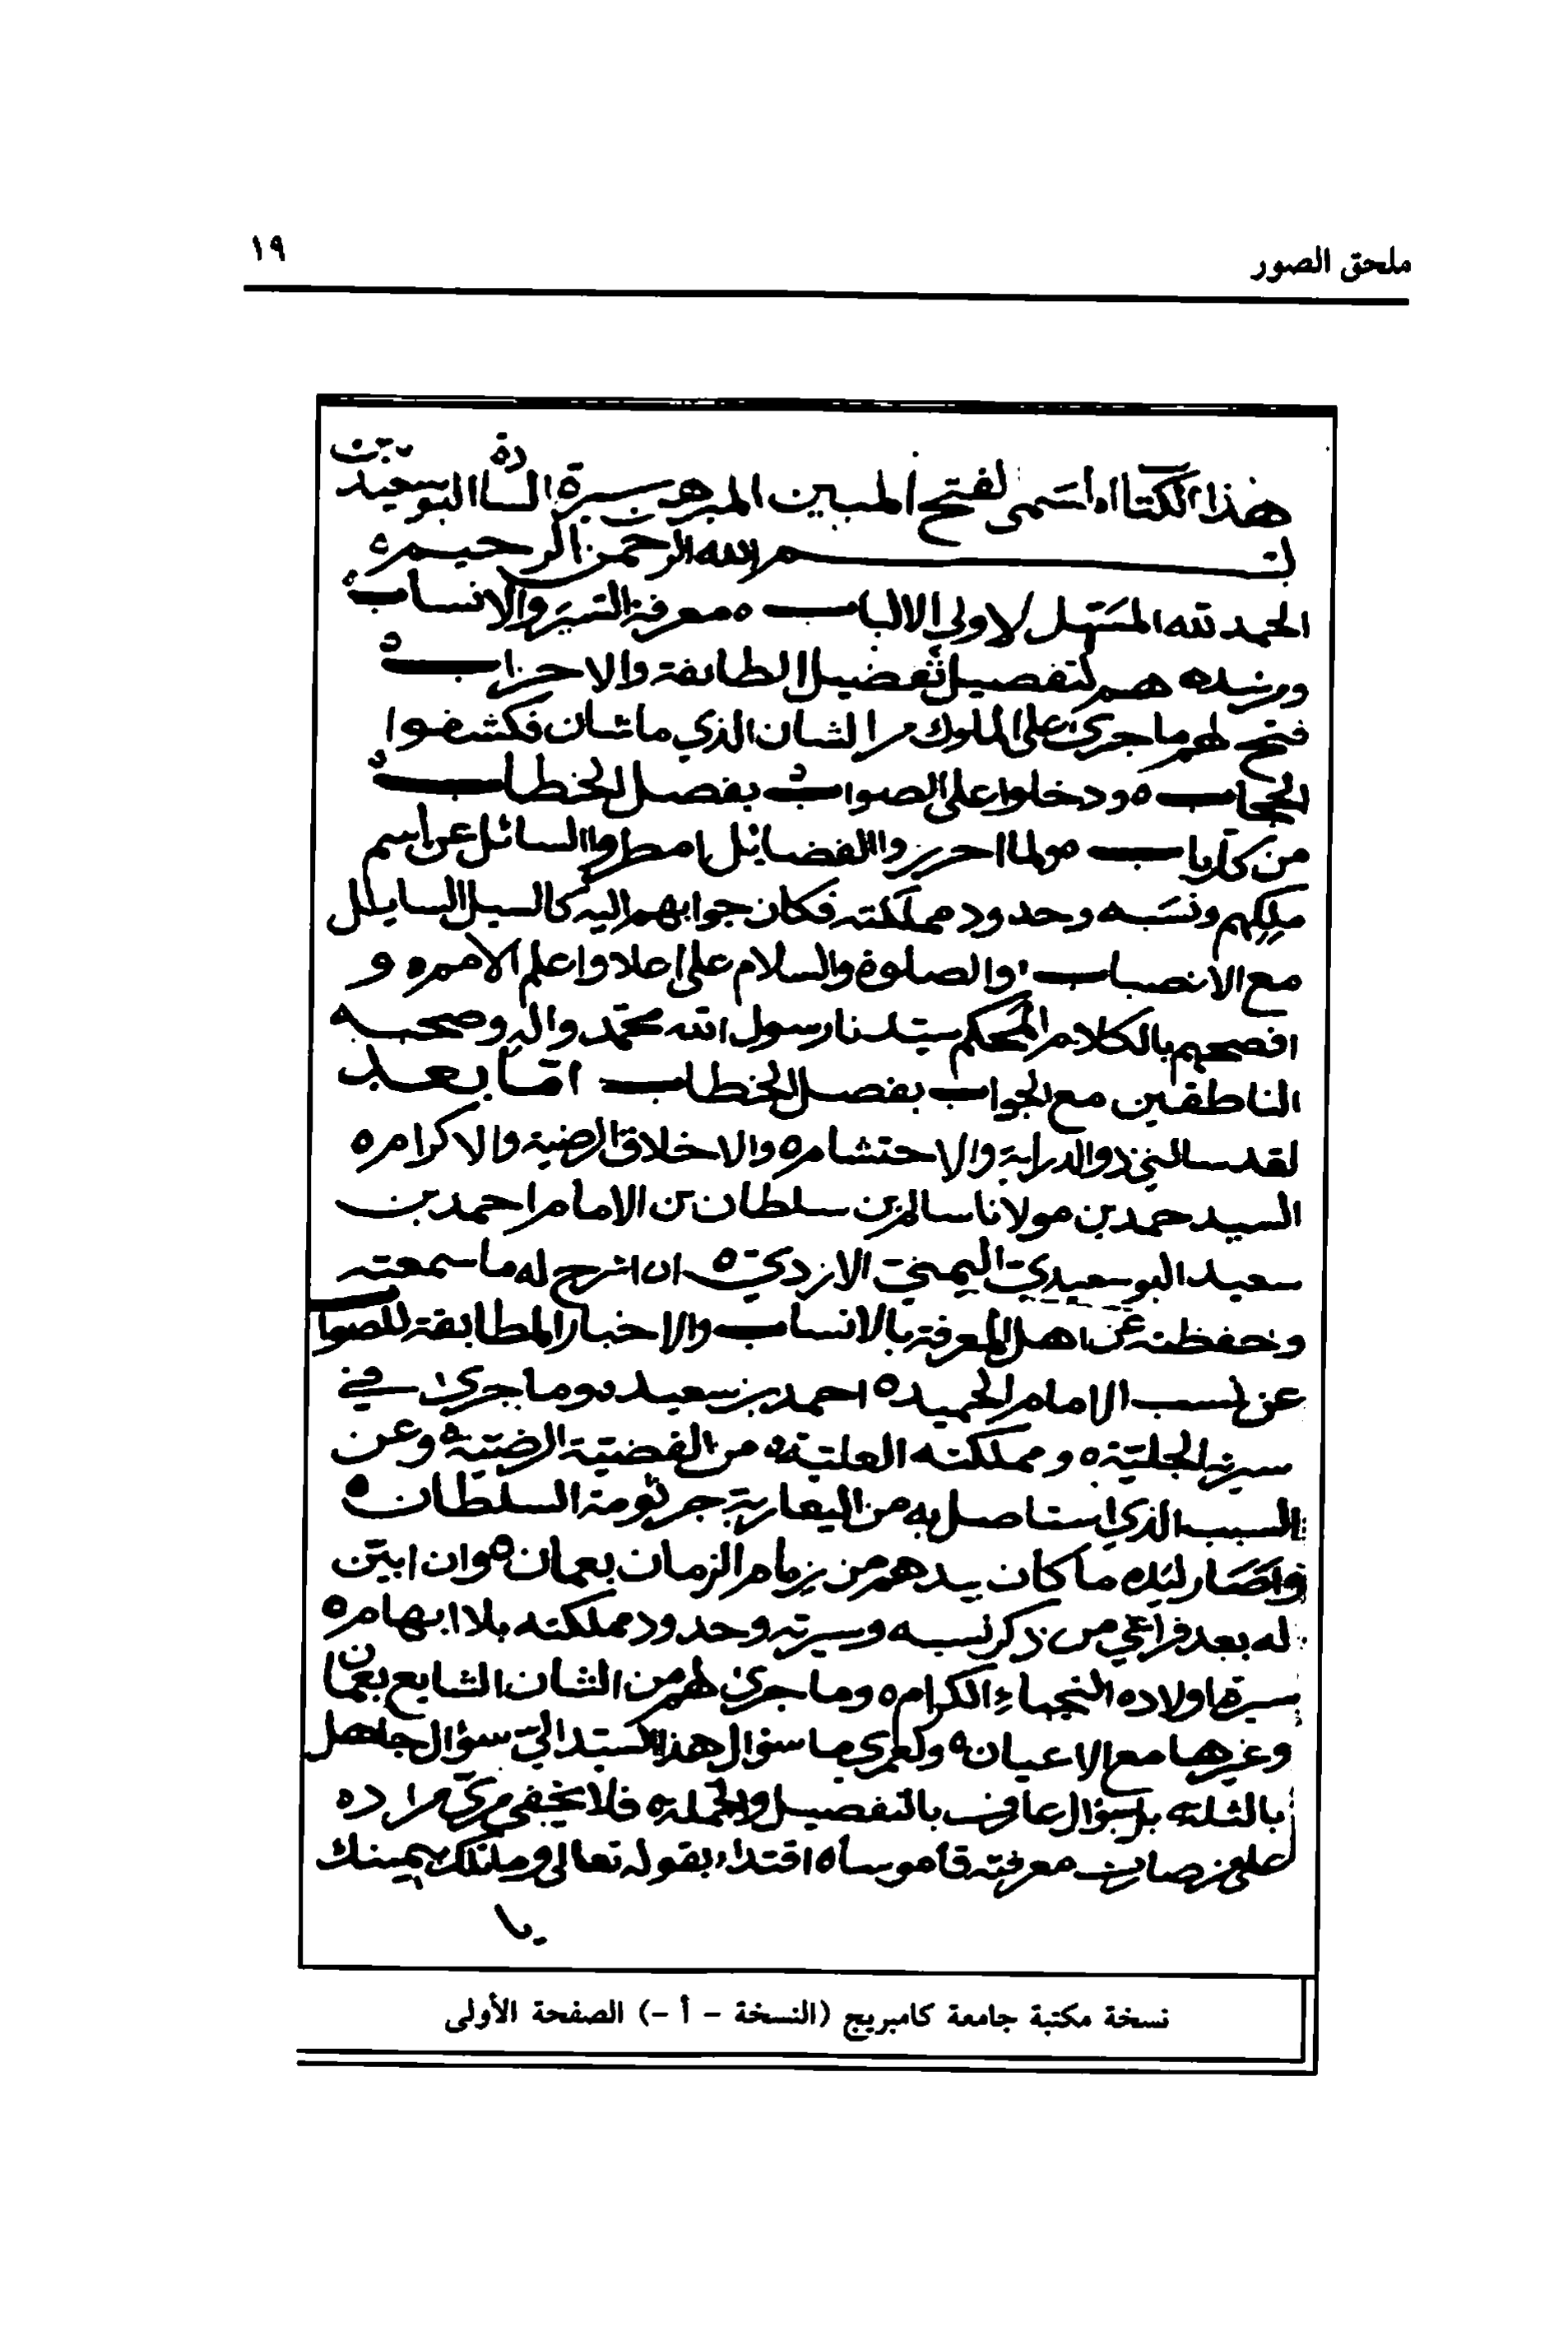 ملحق الصور
١٩
هذا الكتاب المسمى الفتح المبين المبرهن سيرة السادة البوسعيديين
بسم الله الرحمن الرحيم ه
الحمد لله المسهل لاولي الالباب ه معرفة السير والانساب ه
ومرشدهم لتفصيل تفضيل الطائفة والاحزاب ه
فتح لهم ما جرى على الملوك من الشان الذي ما شان فكشفوا
الحجاب ه ودخلوا على الصواب ه بفصل الخطاب ه
من كل باب ولما احرزوا الفضايل امطروا السائل عن اسم
ملكهم ونسبه وحدود مملكته فكان جوابهم اليه كالسيل السايل
مع الانصباب والصلوة والسلام على اعلا واعلم الامم ه و
افصحهم بالكلام المحكم سيدنا رسول الله محمد واله وصحبه
الناطقين مع الجواب بفصل الخطاب اما بعد
لقد سالني ذو الدراية والاحتشام ه والاخلاق الرضية والاكرام ه
السيد حمد بن مولانا سالم بن سلطان بن الامام احمد بن
سعيد البوسعيدي اليمني الازدي ه ان اشرح له ما سمعته
وحفظته عن اهل المعرفة بالانساب والاخبار المطابقة للصواب
عن نسب الامام الحميد ه احمد بن سعيد ه وما جرى في
سيرته الجلية ه ومملكته العلية ه من القضية الرضية ه وعن
السبب الذي استاصل به من اليعاربة جرثومة السلطان ه
ما كان بيدهم من زمام الزمان بعمان ه وان ابين
له بعد فراغي من ذكر نسبه وسيرته وحدود مملكته بلا ابهام ه
سيرة اولاده النجباء الكرام ه وما جرى لهم من الشان الشايع بعمان
وغيرها مع الاعيان ه ولعمري ما سؤال هذا السيد الي سؤال جاهل
بالثلة بل سؤال عارف بالتفصيل والجملة ه فلا يخفى مراده
على من معرفته قاموساه اقتداء بقوله تعالى وما تلك بيمينك
يا
نسخة مكتبة جامعة كامبريج (النسخة - أ -) الصفحة الأولى